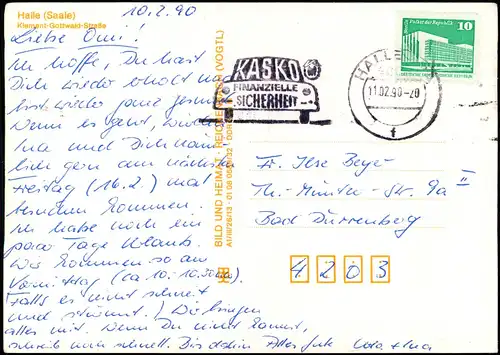 Halle (Saale)
Klement-Gottwald-Straße
10.2.90
Liebe Omi!
Ich hoffe, Du hast
Dich wieder erholt und
bist wieder ganz gesund.
Wenn es geht, würden
Ina und Dich
dich gern am nächsten
Freitag (16.2.) mal
besuchen kommen.
Ich habe noch ein
paar Tage Urlaub.
Wir kommen so am
Vormittag (ca 10.-10.30 Uhr)
Falls es nicht schneit
und stürmt! Wir bringen
alles mit. Wenn Du nicht kannst,
schreib noch schnell. Bis dahin Alles Gute
BILD UND HEIMAT · REICHENBACH (VOGTL)
KASKO
FINANZIELLE
SICHERHEIT
HALLE
11.02.90-20
f
Palast der Republik
10
Fr. Ilse Beyer
Th.-Müntzer-Str. 9a II
Bad Dürrenberg
4203